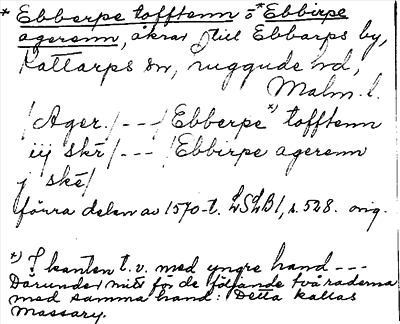 * Ebberpe tofftenn o *Ebbirpe
agerenn, åkrar till Ebbarps by,
Kattarps sn, Luggude hd,
Malm. l.
/Ager./---/Ebberpe*) tofftenn
iij skr/---/Ebbirpe agerenn
j ske/
förra delen av 1570-t. LSLB1, s. 528. orig.
*) I kanten t.v. med yngre hand ---
Därunder mitt för de följande två raderna
med samma hand: Detta kallas
Massary.